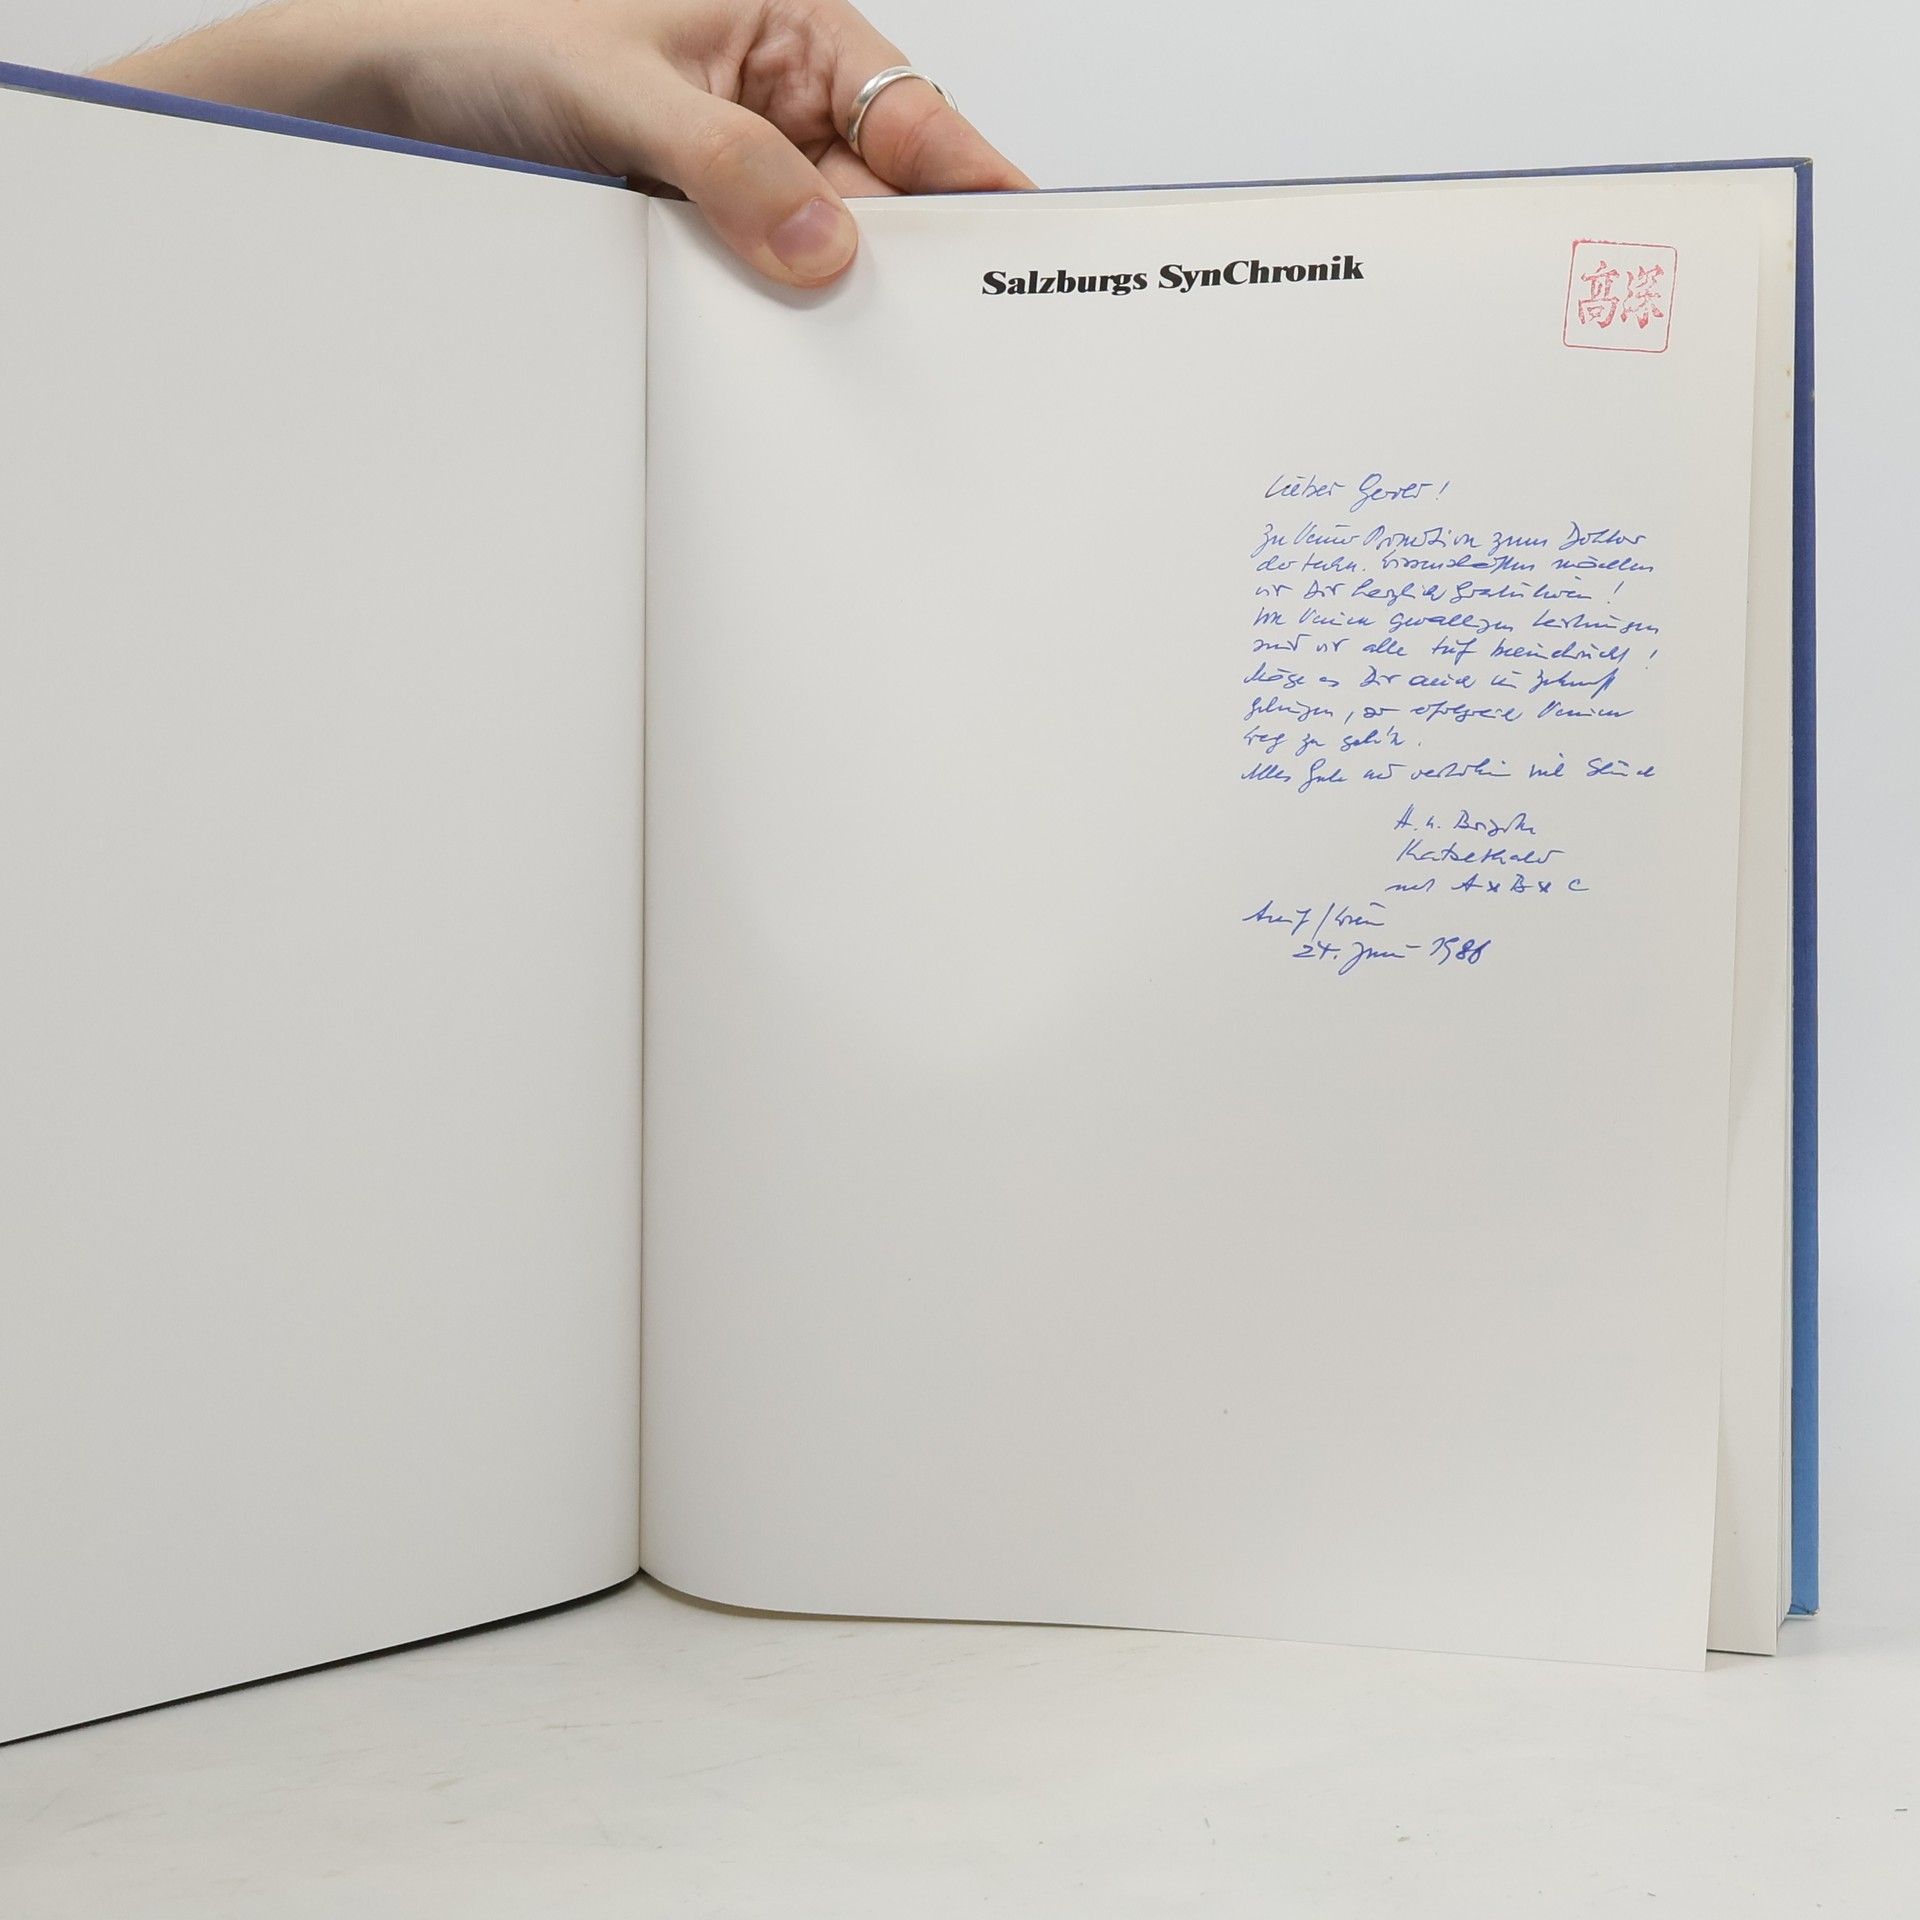 Salzburgs SynChronik
高深
Lieber Gerold!
Zu Deiner Promotion zum Doktor
der techn. Wissenschaften möchten
wir Dir herzlich gratulieren!
Von Deinen gewaltigen Leistungen
sind wir alle tief beeindruckt!
Möge es Dir auch in Zukunft
gelingen, so erfolgreich Deinen
Weg zu geh'n.
Alles Gute und weiterhin viel Glück
H. u. Brigitte
Katschthaler
mit A x B x C
Anif/Wien
24. Juni 1986